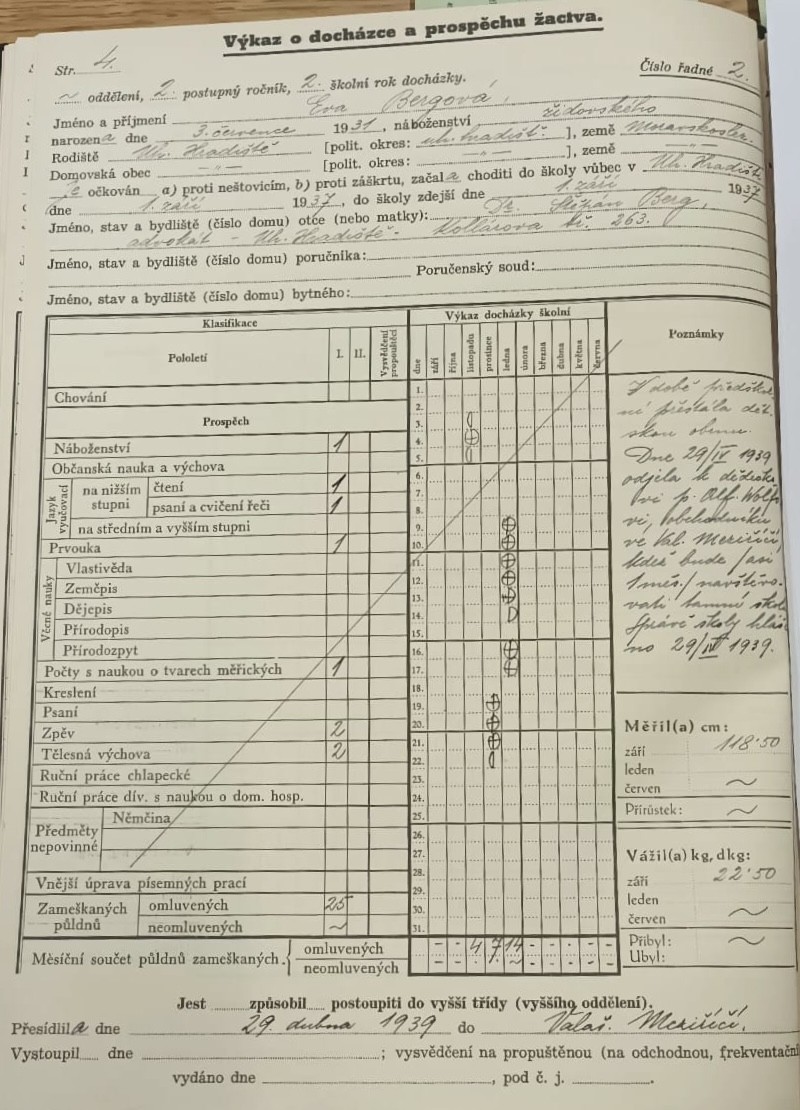 Výkaz o docházce a prospěchu žactva.
Str. 4.
Číslo řadné 2.
~ oddělení, 2. postupný ročník, 2. školní rok docházky.
Jméno a příjmení Eva Bergová,
narozena dne 3. července 1931, náboženství židovského
Rodiště Uh. Hradiště [polit. okres: uh. hradišt. ], země Moravskoslez.
Domovská obec — „ — [polit. okres: — „ — ], země — „ —
je očkován a) proti neštovicím, b) proti záškrtu, začala choditi do školy vůbec v Uh. Hradišti
dne 1. září 1937, do školy zdejší dne 1. září 1937
Jméno, stav a bydliště (číslo domu) otce (nebo matky): Dr. Štěpán Berg,
advokát - Uh. Hradiště - Kollárova tř. 263.
Jméno, stav a bydliště (číslo domu) poručníka:
Poručenský soud:
Jméno, stav a bydliště (číslo domu) bytného:
Klasifikace
Pololetí I. II. Vysvědčení propouštěcí
Chování
Prospěch
Náboženství 1
Občanská nauka a výchova
Jazyk vyučovací
na nižším stupni
čtení 1
psaní a cvičení řeči 1
na středním a vyšším stupni
Prvouka 1
Věcné nauky
Vlastivěda
Zeměpis
Dějepis
Přírodopis
Přírodozpyt
Počty s naukou o tvarech měřických 1
Kreslení
Psaní
Zpěv 2
Tělesná výchova 2
Ruční práce chlapecké
Ruční práce dív. s naukou o dom. hosp.
Předměty nepovinné
Němčina
Vnější úprava písemných prací
Zameškaných půldnů
omluvených 25
neomluvených ~
Výkaz docházky školní
dne září října listopadu prosince ledna února března dubna května června
1.
2.
3.
4.
5.
6.
7.
8.
9.
10.
11.
12.
13.
14.
15.
16.
17.
18.
19.
20.
21.
22.
23.
24.
25.
26.
27.
28.
29.
30.
31.
Měsíční součet půldnů zameškaných
omluvených - - 4 7 14 - - - - -
neomluvených - - . . ~ - - - - -
Poznámky
V době předškol
ní přestála dět.
skou obrnu.
Dne 29/IV 1939
odjela k dědečko
vi p. Alf. Wolfo
vi, obchodníku
ve Val. Meziříčí,
kdež bude /asi
1 měs./ navštěvo-
vati tamní školu
Správě školy hláše
no 29/IV 1939.
Měřil(a) cm:
září 118·50
leden
červen ~
Přírůstek: ~
Vážil(a) kg, dkg:
září 22·50
leden
červen ~
Přibyl: ~
Ubyl:
Jest způsobil postoupiti do vyšší třídy (vyššího oddělení).
Přesídlila dne 29. dubna 1939 do Valaš. Meziříčí.
Vystoupil dne ; vysvědčení na propuštěnou (na odchodnou, frekventační
vydáno dne , pod č. j. .